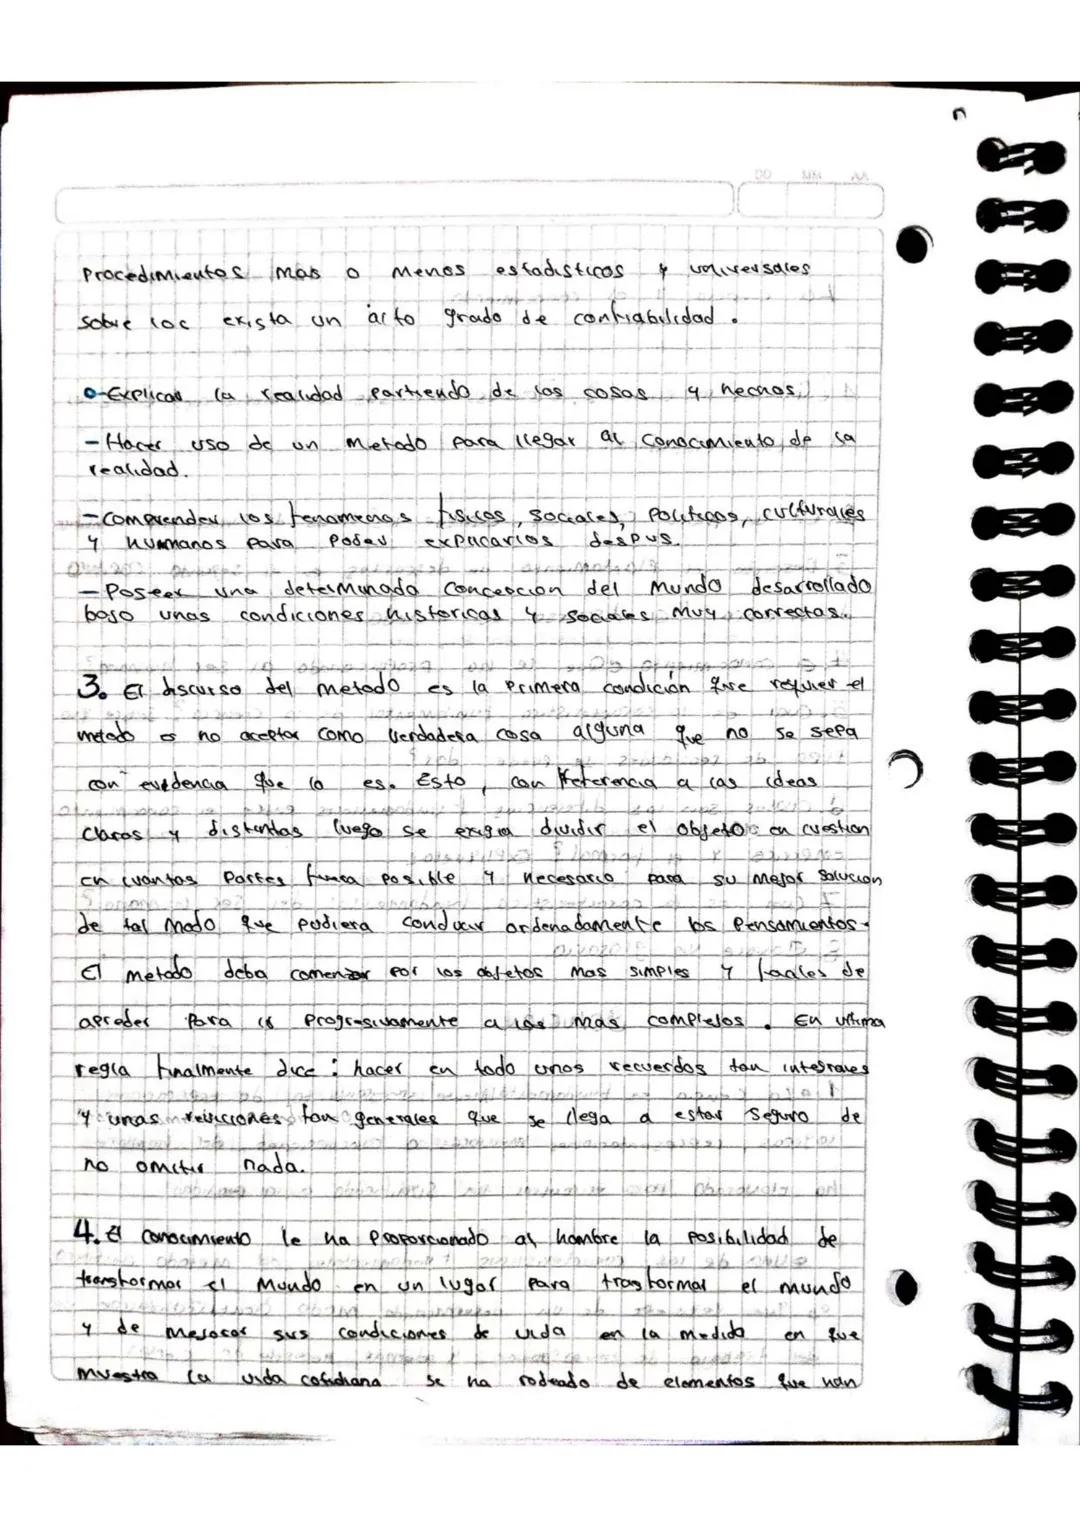 DD MM AA
Procedimientos mas o menos estadisticos y universales
sobre los exista un acto grado de confiabilidad.
o-Explicas la realidad partiendo de las cosas y hechos,
- Hacer uso de un metodo para llegar al conocimiento de la
realidad.
- comprender los fenomenos fisicos, sociales, politicos, culturales
y hummanos para poder explicarlos despus.
- Poseer una determinada concepcion del mundo desarrollado
bajo unas condiciones historicas y sociales muy correctas.
3. El discurso del metodo es la primera condición que requier el
metodo es no aceptar como verdadera cosa alguna que no se sepa
con evidencia que lo es. Esto, con referencia a las ideas
claras y distintas luego se exigia dividir el objeto en cuestion
en cuantas partes fuera posible y necesario para su mejor solucion
de tal modo que pudiera conducir ordenadamente los pensamientos.
El metodo deba comenzar por los objetos mas simples y faciles de
apreder para ir progresivamente a los mas complejos. En ultima
regla finalmente dice: hacer en todo unos recuerdos tan integrales
y unas revicciones tan generales que se llega a estar seguro de
no omitir nada.
4. El conocimiento le ha proporcionado al hombre la posibilidad de
transformar el mundo en un lugar para trasformar el mundo
y de mejorar sus condiciones de vida en la medida en que
muestra la vida cotidiana se ha rodeado de elementos que han